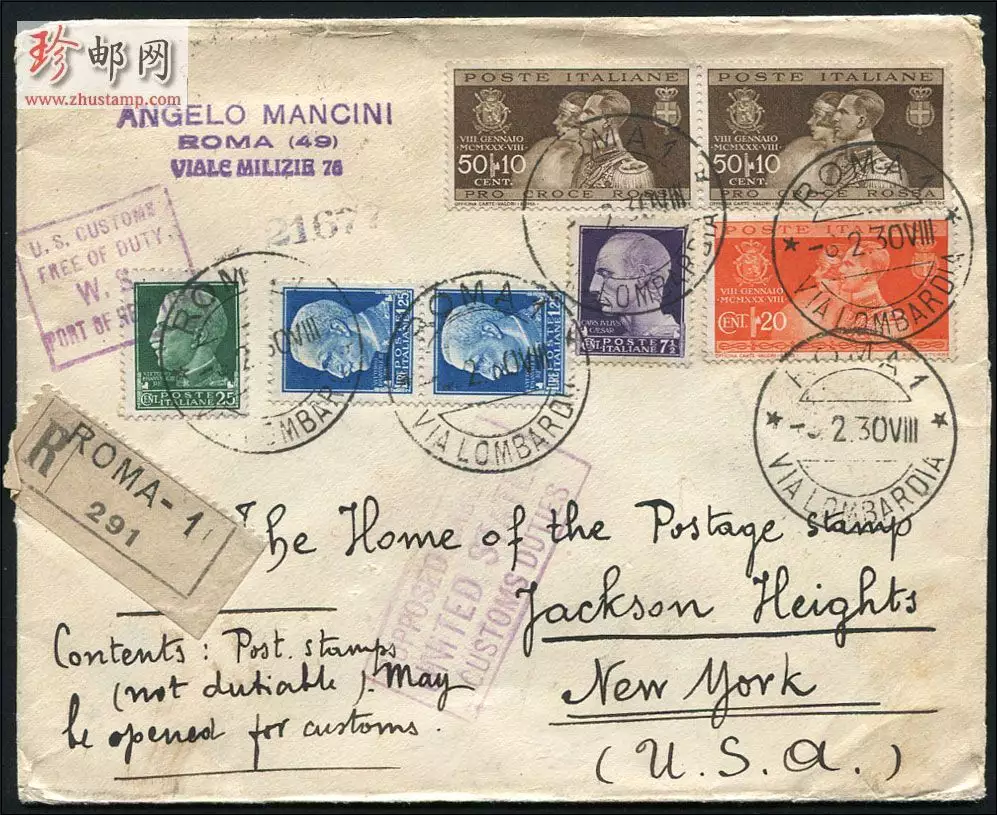 珍邮网
www.zhustamp.com
ANGELO MANCINI
ROMA (49)
VIALE MILIZIE 76
U.S. CUSTOMS
FREE OF DUTY.
W. S.
PORT OF
2167
POSTE ITALIANE
VIII GENNAIO
MCMXXX-VIII
50+10
CENT.
PRO CROCE ROSSA
POSTE ITALIANE
VIII GENNAIO
MCMXXX-VIII
50+10
CENT.
PRO CROCE ROSSA
ROMA 1
30VIII
LOMBARDIA
ROMA 1
-3.2.30VIII
VIA LOMBARDIA
CENT. 25
POSTE ITALIANE
LIRE 1,25
POSTE ITALIANE
LIRE 1,25
POSTE ITALIANE
CAIVS IVLIVS CAESAR
CENT. 7½
POSTE ITALIANE
POSTE ITALIANE
VIII GENNAIO
MCMXXX-VIII
CENT. 1+20
ROM
30VIII
LOMBAR
ROMA 1
VIA LOMBARDIA
ROMA 1
-3.2.30VIII
VIA LOMBARDIA
R
ROMA-1
291
The Home of the Postage stamp
Jackson Heights
New York
(U.S.A.)
UNITED
CUSTOMS DUTIES
Contents: Post. stamps
(not dutiable). May
be opened for customs.